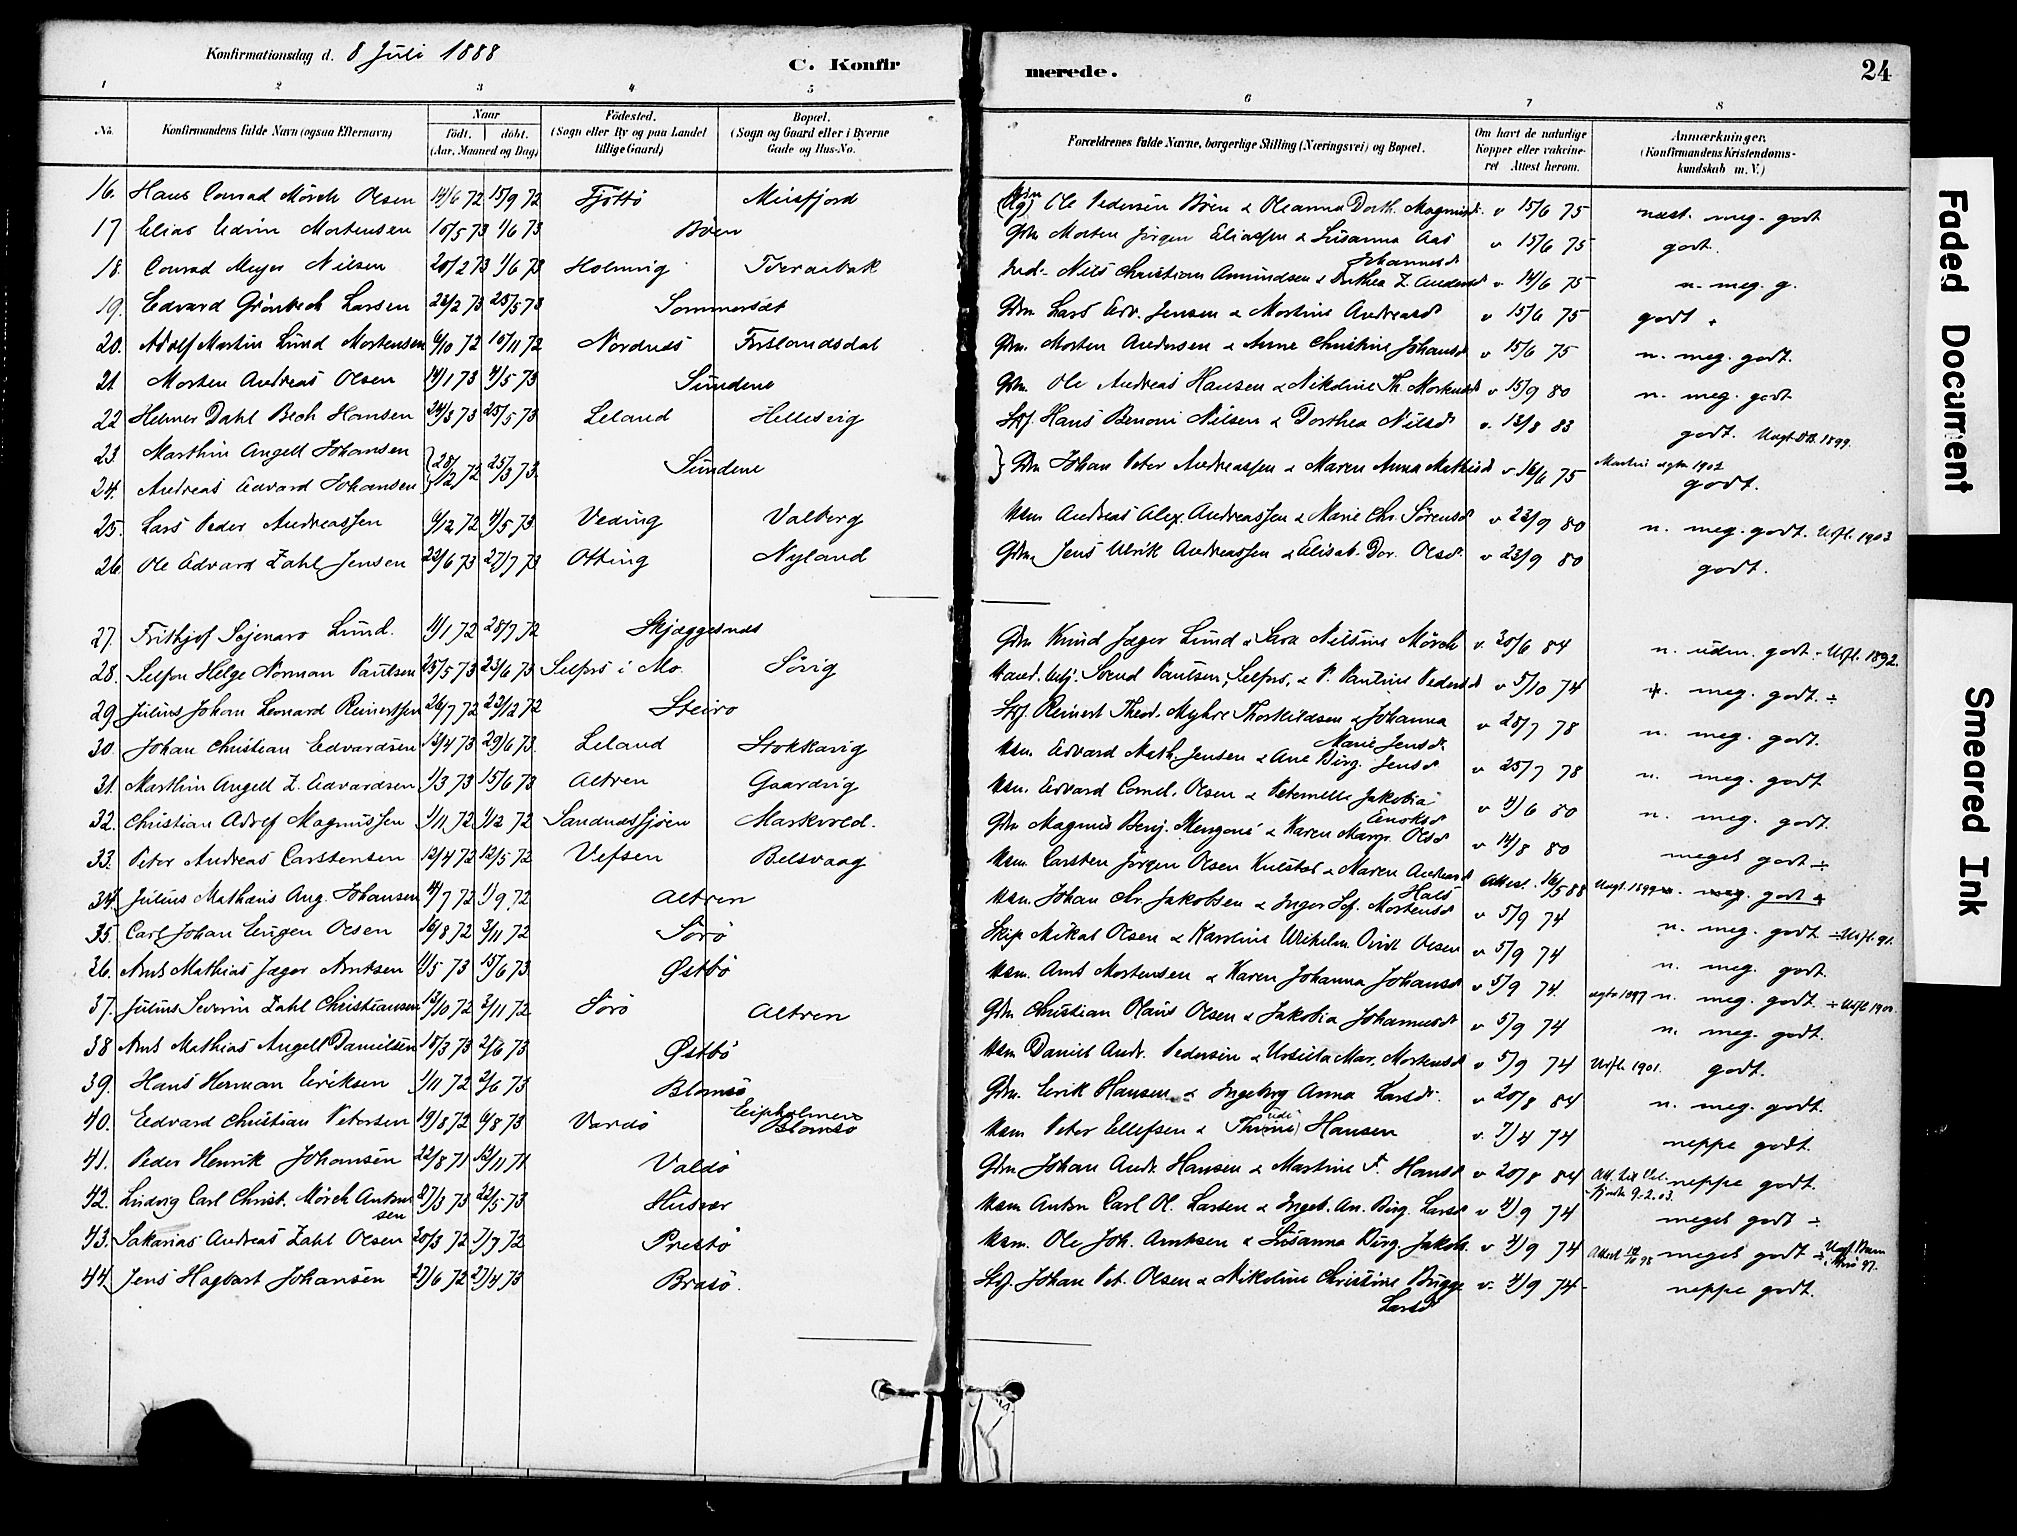 Konfirmationsdag d. 8 Juli 1888
C. Konfirmerede.
24
1 2 3 4 5 6 7 8
No. Konfirmandens fulde Navn (ogsaa Efternavn) Naar født. døbt. (Aar, Maaned og Dag) Fødested. (Sogn eller By og paa Landet tillige Gaard) Bopæl. (Sogn og Gaard eller i Byerne Gade og Hus-No. Forældrenes fulde Navne, borgerlige Stilling (Næringsvei) og Bopæl. Om havt de naturlige Kopper eller vakcineret Attest herom. Anmærkninger. (Konfirmandens Kristendomskundskab m. V.)
16. Hans Conrad Mörch Olsen 14/6 72 15/9 72 Tjöttö Meisfjord Ole Pedersen Böen & Oleanna Dorth. Magnusd. v 15/6 75 næst. meg. godt
17 Elias Edvin Mortensen 10/5 73 1/6 73 Böen Gdm Morten Jörgen Eliassen & Susanna Aas v 15/6 75 godt.
18. Conrad Meyer Nilsen 20/2 73 1/6 73 Holmvig Tveraabak Ind. Nils Christian Amundsen & Dorthea Z. Andersd Johannesd v 14/6 75 n. meg. g.
19. Edvard Grönbech Larsen 22/2 73 25/5 73 Sommersæt Gdm Lars Edv. Jensen & Martine Andreasd v 15/6 75 godt
20. Adolf Martin Lund Mortensen 6/10 72 10/11 72 Nordnæs Forslandsdal Gdm. Morten Andersen & Anne Christine Johansd v 15/6 75 n. meg. godt.
21. Morten Andreas Olsen 14/1 73 4/5 73 Sundene Gdm. Ole Andreas Hansen & Nikoline Th. Mortensd v 15/9 80 n. meg. godt
22 Helmer Dahl Bech Hansen 24/3 73 25/5 73 Leland Hellesvig Hans Benoni Nilsen & Dorthea Nilsd v. 13/8 83 godt. Uægt. DB. 1899.
23. Marthin Angell Johansen
24. Andreas Edvard Johansen 28/12 72 25/3 73. Sundene Gdm Johan Peter Andreassen & Maren Anna Mathisd v 16/6 75 Martin 1902 godt.
25. Lars Peder Andreassen 6/12 72 4/5 73 Veding Valberg Hsm Andreas Alex. Andreassen & Marie Chr. Sörensd v 23/9 80 n. meg. godt. Utfl. 1903
26 Ole Edvard Zahl Jensen 22/6 73 27/7 73 Otting Nyland Gdm Jens Ulrik Andreassen & Elisab. Dor. Olsd. v 23/9 80 godt.
27. Frithjof Sejenaro Lund. 11/1 72 28/7 72 Skjæggesnæs Gdm Knud Jæger Lund & Sara Nilsine Mörch v. 20/6 84 n. udm. godt. Utfl. 1892.
28. Selfor Helge Norman Paulsen 25/5 73 23/6 73 Selfors i Mo. Sövig Hand. betj. Svend Paulsen, Selfors, & P. Pauline Pedersd v 5/10 74 n. meg. godt. ÷
29 Julius Johan Leonard Reinertsen 26/7 72 22/12 72 Steiro Reinert Theod. Myhre Thorkildsen & Johanna Marie Jensd v 25/7 78 n. meg. godt.
30. Johan Christian Edvardsen 13/4 73 29/6 73. Leland Stokkavig Hsm. Edvard Math. Jensen & Ane Birg. Jensd v 25/7 78 n. meg. godt
31. Marthin Angell Z. Edvardsen 1/3 73 15/6 73 Altren Gaardvig Hsm. Edvard Cornel. Olsen & Peternelle Jakobia Enoksd v 4/6 80 n. meg. godt.
32. Christian Adolf Magnussen 1/11 72 1/12 72 Sandnæssjöen Markvold. Gdm Magnus Benj. Mengone & Karen Margr. Olsd v 14/8 80 meget godt ÷
33. Peter Andreas Carstensen 12/4 72 12/5 72 Vefsen Belsvaag Hsm. Carsten Jörgen Olsen Kulstad & Maren Andersd Hals Attest. 16/5 88 Uægt. 1899 n. meg. godt
34. Julius Mathæus Aug. Johansen 4/7 72 1/9 72 Altren Hsm. Johan Chr. Jakobsen & Inger Sof. Mortensd v 5/9 74 n. meg. godt ÷ Utfl. 91.
35. Carl Johan Eugen Olsen 16/8 72 3/11 72 Sörö Skip. Mikal Olsen & Karoline Wilhelm. Qvist Olsen v 5/9 74 n. meg. godt.
36. Arnt Mathias Jæger Arntsen 11/5 73 15/6 73. Østbö Hsm. Arnt Mortensen & Karen Johanna Johansd v 5/9 74. 1897 n. meg. godt. ÷ Utfl. 190
37. Julius Severin Zahl Christiansen 13/10 72 3/11 72. Sörö Altren Gdm Christian Olaus Olsen & Jakobia Johannesd v 5/9 74 n. meg. godt.
38 Arnt Mathias Angell Danielsen 15/3 73 2/6 73 Østbö Hsm Daniel Andr. Pedersen & Ursula Mar. Mortensd v 5/9 74 Utfl. 1901. godt.
39. Hans Herman Eriksen 1/11 72 2/6 73 Blomsö Gdm. Erik Hansen & Ingeborg Anna Larsd. v 20/8 84 n. meg. godt.
40. Edvard Christian Petersen 19/8 72 6/8 73 Vardö Eipholmen Blomsö Hsm Peter Ellefsen & Thrine Hansen v. 7/4 74 neppe godt.
41. Peder Henrik Johansen 22/8 71 12/11 71 Valdö Gdm Johan Andr. Hansen & Martine P. Hansd v 20/8 84 neppe godt. 9-2.03.
42. Ludvig Carl Christ. Mörch Antonsen 27/3 73 22/5 73 Husvær Hsm Anton Carl Ol. Larsen & Ingeb. An. Birg. Larsd v 4/9 74 meget godt ÷
43. Sakarias Andreas Zahl Olsen 20/3 72 7/7 72 Prestö Hsm. Ole Joh. Arntsen & Susanna Birg. Jakobs. v 4/9 74 Attest 95 meget godt ÷ 97.
44. Jens Hagbart Johansen 23/6 72 27/4 73 Brasö. Johan Pet. Olsen & Nikoline Christine Brygge Larsd v. 4/9 74 neppe godt.
Faded Document
Smeared Ink